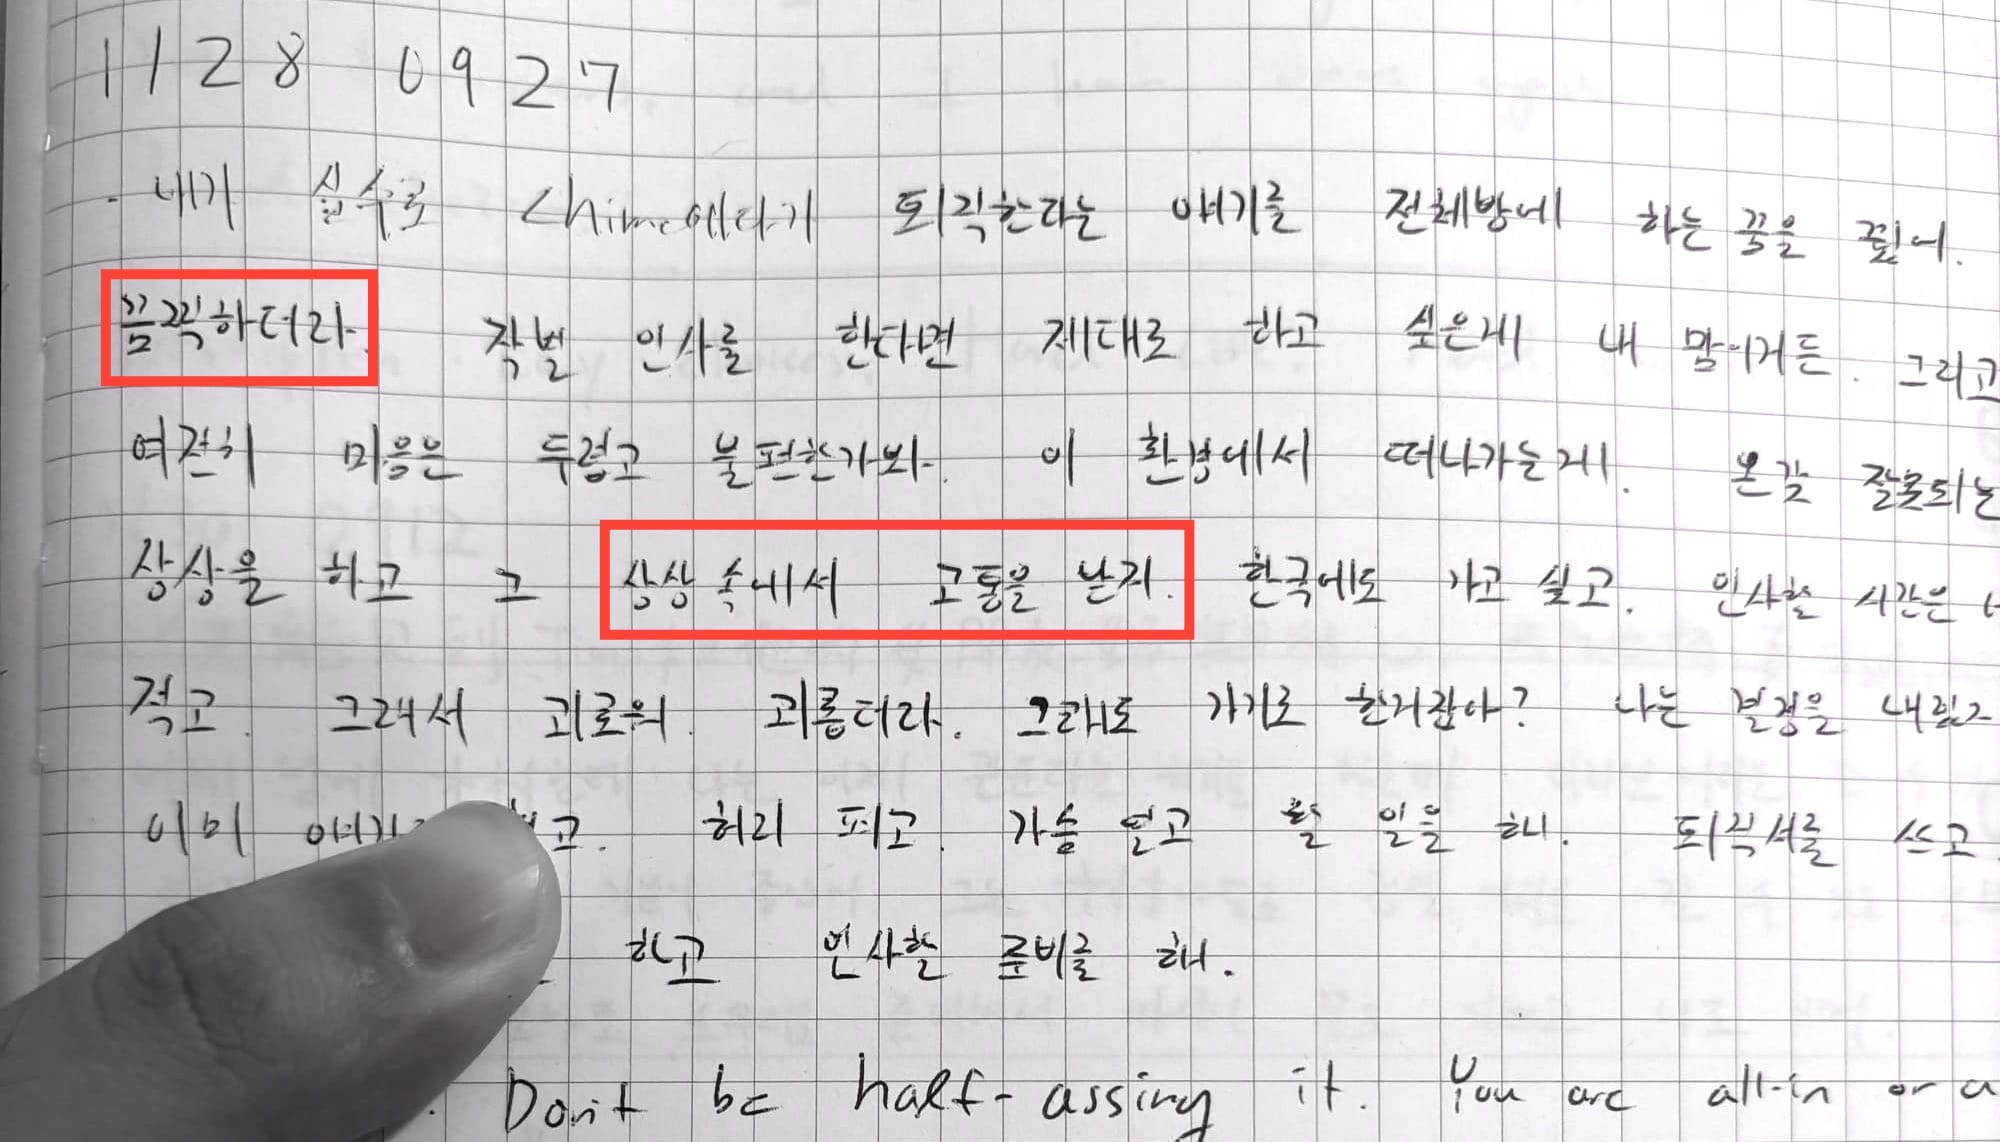 1128 0927
- 내가 실수로 Chime에다가 퇴직한다는 얘기를 전체방에 하는 꿈을 꿨어.
끔찍하더라. 작별 인사를 한다면 제대로 하고 싶은게 내 말이거든. 그리고
여전히 마음은 두렵고 불편한가봐. 이 환경에서 떠나가는게. 온갖 잘못되는
상상을 하고 그 상상 속에서 고통을 받지. 한국에도 가고 싶고. 인사할 시간은
적고. 그래서 괴로워. 괴롭더라. 그래도 가기로 한거잖아? 나는 결정을 내렸고
이미 허리 펴고. 가슴 펴고 할 일을 해. 퇴직서를 쓰고.
하고 인사할 준비를 해.
Don't be half-assing it. You are all-in or